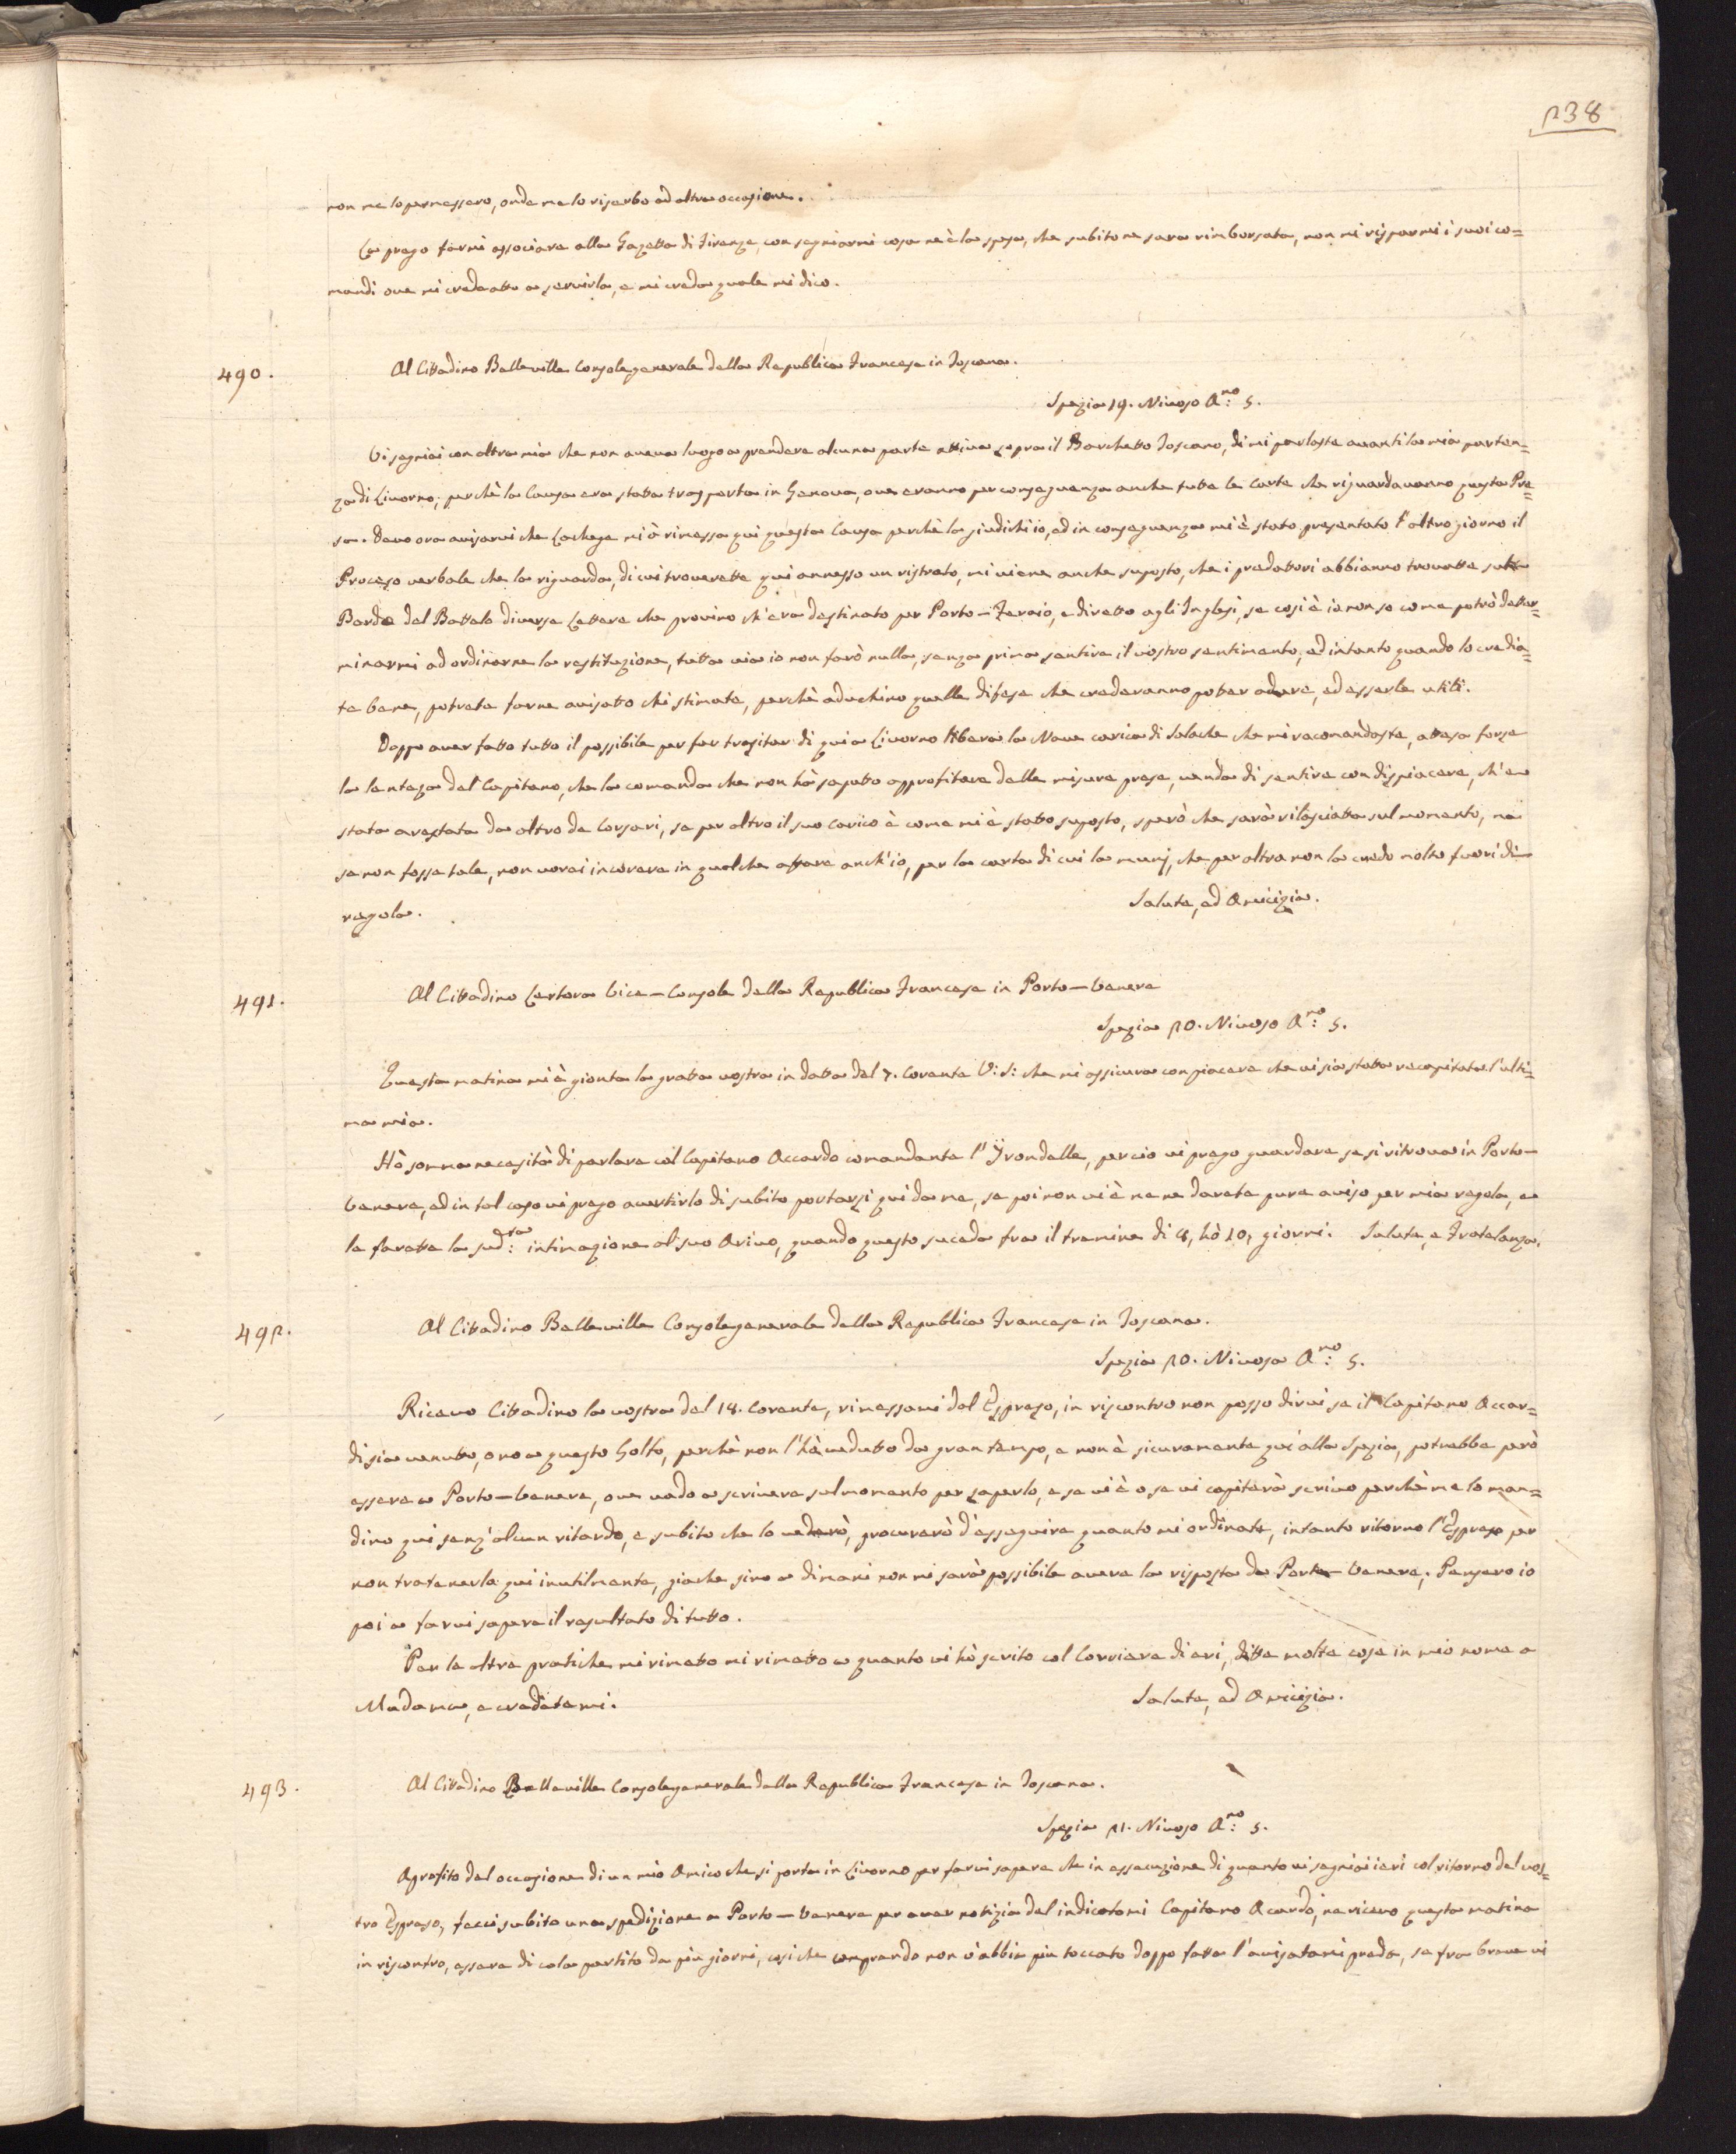 238
non me lo permessero, onde me lo riserbo ad altra occasione.
La prego farmi associare alla Gazetta di Firenze, con segniarmi cosa ne è la spesa, che subito ne sara rimborsata, non mi risparmi i suoi co=
mandi ove mi creda atto a servirla, e mi creda quale mi dico.
490.
Al Cittadino Belleville Console generale della Republica Francese in Toscana.
Spezia 19. Nivoso A:no 5.
Vi segniai con altra mia che non aveva luogo a prendere alcuna parte attiva sopra il Barchetto Toscano, di mi parlaste avanti la mia parten=
za di Livorno; perchè la Causa era stata trasporta in Genova, ove eranno per conseguenza anche tutte le Carte che riguardavanno questa Pre=
sa. Devo ora avisarvi che Lacheze mi à rimessa qui questa Causa perchè la giudichi io, ed in conseguenza mi è stato presentato l'altro giorno il
Proceso verbale che la riguarda, di cui troverette qui annesso un ristrato, mi viene anche suposto, che i predattori abbianno trovatte sul
Bordo del Battelo diverse Lettere che provino ch'era destinato per Porto-Feraio, e diretto agli Inglesi, se cosi è io non so come potrò detter=
minarmi ad ordinarne la restituzione, tutta via io non farò nulla, senza prima sentire il vostro sentimento, ed intanto quando lo credia=
te bene, potrete farne avisato chi stimate, perchè aduchino quelle difese che crederanno poter adure, ed esserle utili.
Doppo aver fatto tutto il possibile per far trasitar di qui a Livorno libera la Nave carica di Salache che mi racomandaste, attesa forse
la lenteza del Capitano, che la comanda che non hà saputto approfitare delle misure prese, vendo di sentire con dispiacere, ch'e
stata arestata da altro de Corsari, se per altro il suo Carico è come mi è statto suposto, sperò che sarà rilasciatta sul momento, mà
se non fosse tale, non vorei incorere in qualche affare anch'io, per la carta di cui la munj, che per altro non la credo molto fuori di
regola.
Salute, ed Amicizia.
491.
Al Cittadino Cartera Vice-Console della Republica Francese in Porto-Venere
Spezia 20. Nivoso A:no 5.
Questa matina mi è gionta la gratta vostra in datta del 7. Corente V: S: che mi assicura con piacere che vi sia statta recapitata l'ulti=
ma mia.
Hò somma necasità di parlare col Capitano Accardo comandante l'Yrondelle, percio vi prego guardare se si ritrova in Porto-
Venere, ed in tal caso vi prego avertirlo di subito portarsi qui da me, se poi non vi è ne me darete pure aviso per mia regola, e
le farette la sud:ta intimazione al suo Arivo, quando questo suceda fra il tremine di 8, hò 10, giorni. Salute, e Fratelanza.
492.
Al Cittadino Belleville Console generale della Republica Francese in Toscana.
Spezia 20. Nivoso A:no 5.
Ricevo Cittadino la vostra del 18. Corente, rimessami dal Espreso, in riscontro non posso dirvi se il Capitano Accar=
di sia venutto, o no a questo Golfo, perchè non l'hà vedutto da gran tempo, e non è sicuramente qui alla Spezia, potrebbe però
essere a Porto-Venere, ove vado a scrivere sul momento per saperlo, e se vi è o se vi capiterà scrivo perchè me lo man=
dino qui senz'alcun ritardo, e subito che lo vederò, procurerò d'esseguire quanto mi ordinate, intanto ritorno l'Espreso per
non tratenerla qui inutilmente, giache sino a dimani non mi sarà possibile avere la risposta da Porto-Venere. Penserò io
poi a farvi sapere il resultato di tutto.
Per le altre pratiche mi rimetto mi rimetto a quanto vi hò scrito col Corriere di eri, ditte molte cose in mio nome a
Madama, e credetemi.
Salute, ed Amicizia.
493.
Al Cittadino Belleville Console generale della Republica Francese in Toscana.
Spezia 21. Nivoso A:no 5.
Aprofito del occasione di un mio Amico che si porta in Livorno per farvi sapere che in essecuzione di quanto vi segniai ieri col ritorno del vos=
tro Espreso, fecci subito una spedizione a Porto-Venere per aver notizia del indicatomi Capitano Acardo, ne ricevo questa matina
in riscontro, essere di cola partito da più giorni, cosi che comprendo non v'abbia più toccato doppo fatta l'avisatami preda, se fra breve vi